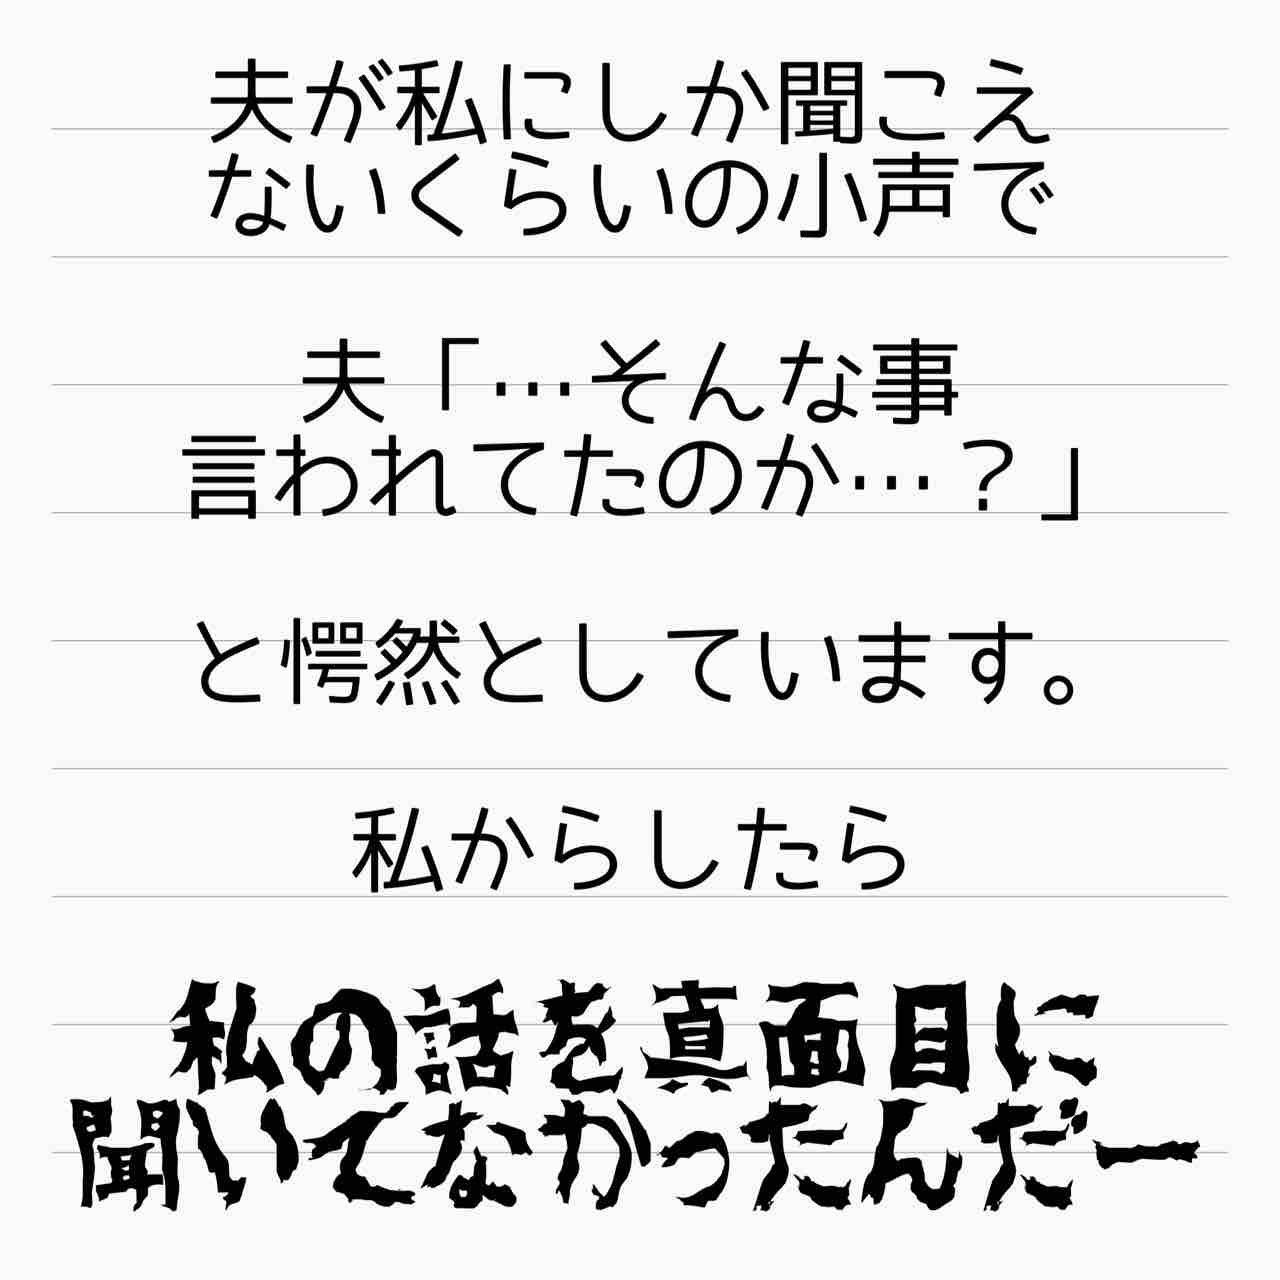 夫が私にしか聞こえ
ないくらいの小声で
夫「…そんな事
言われてたのか…？」
と愕然としています。
私からしたら
私の話を真面目に
聞いてなかったんだー